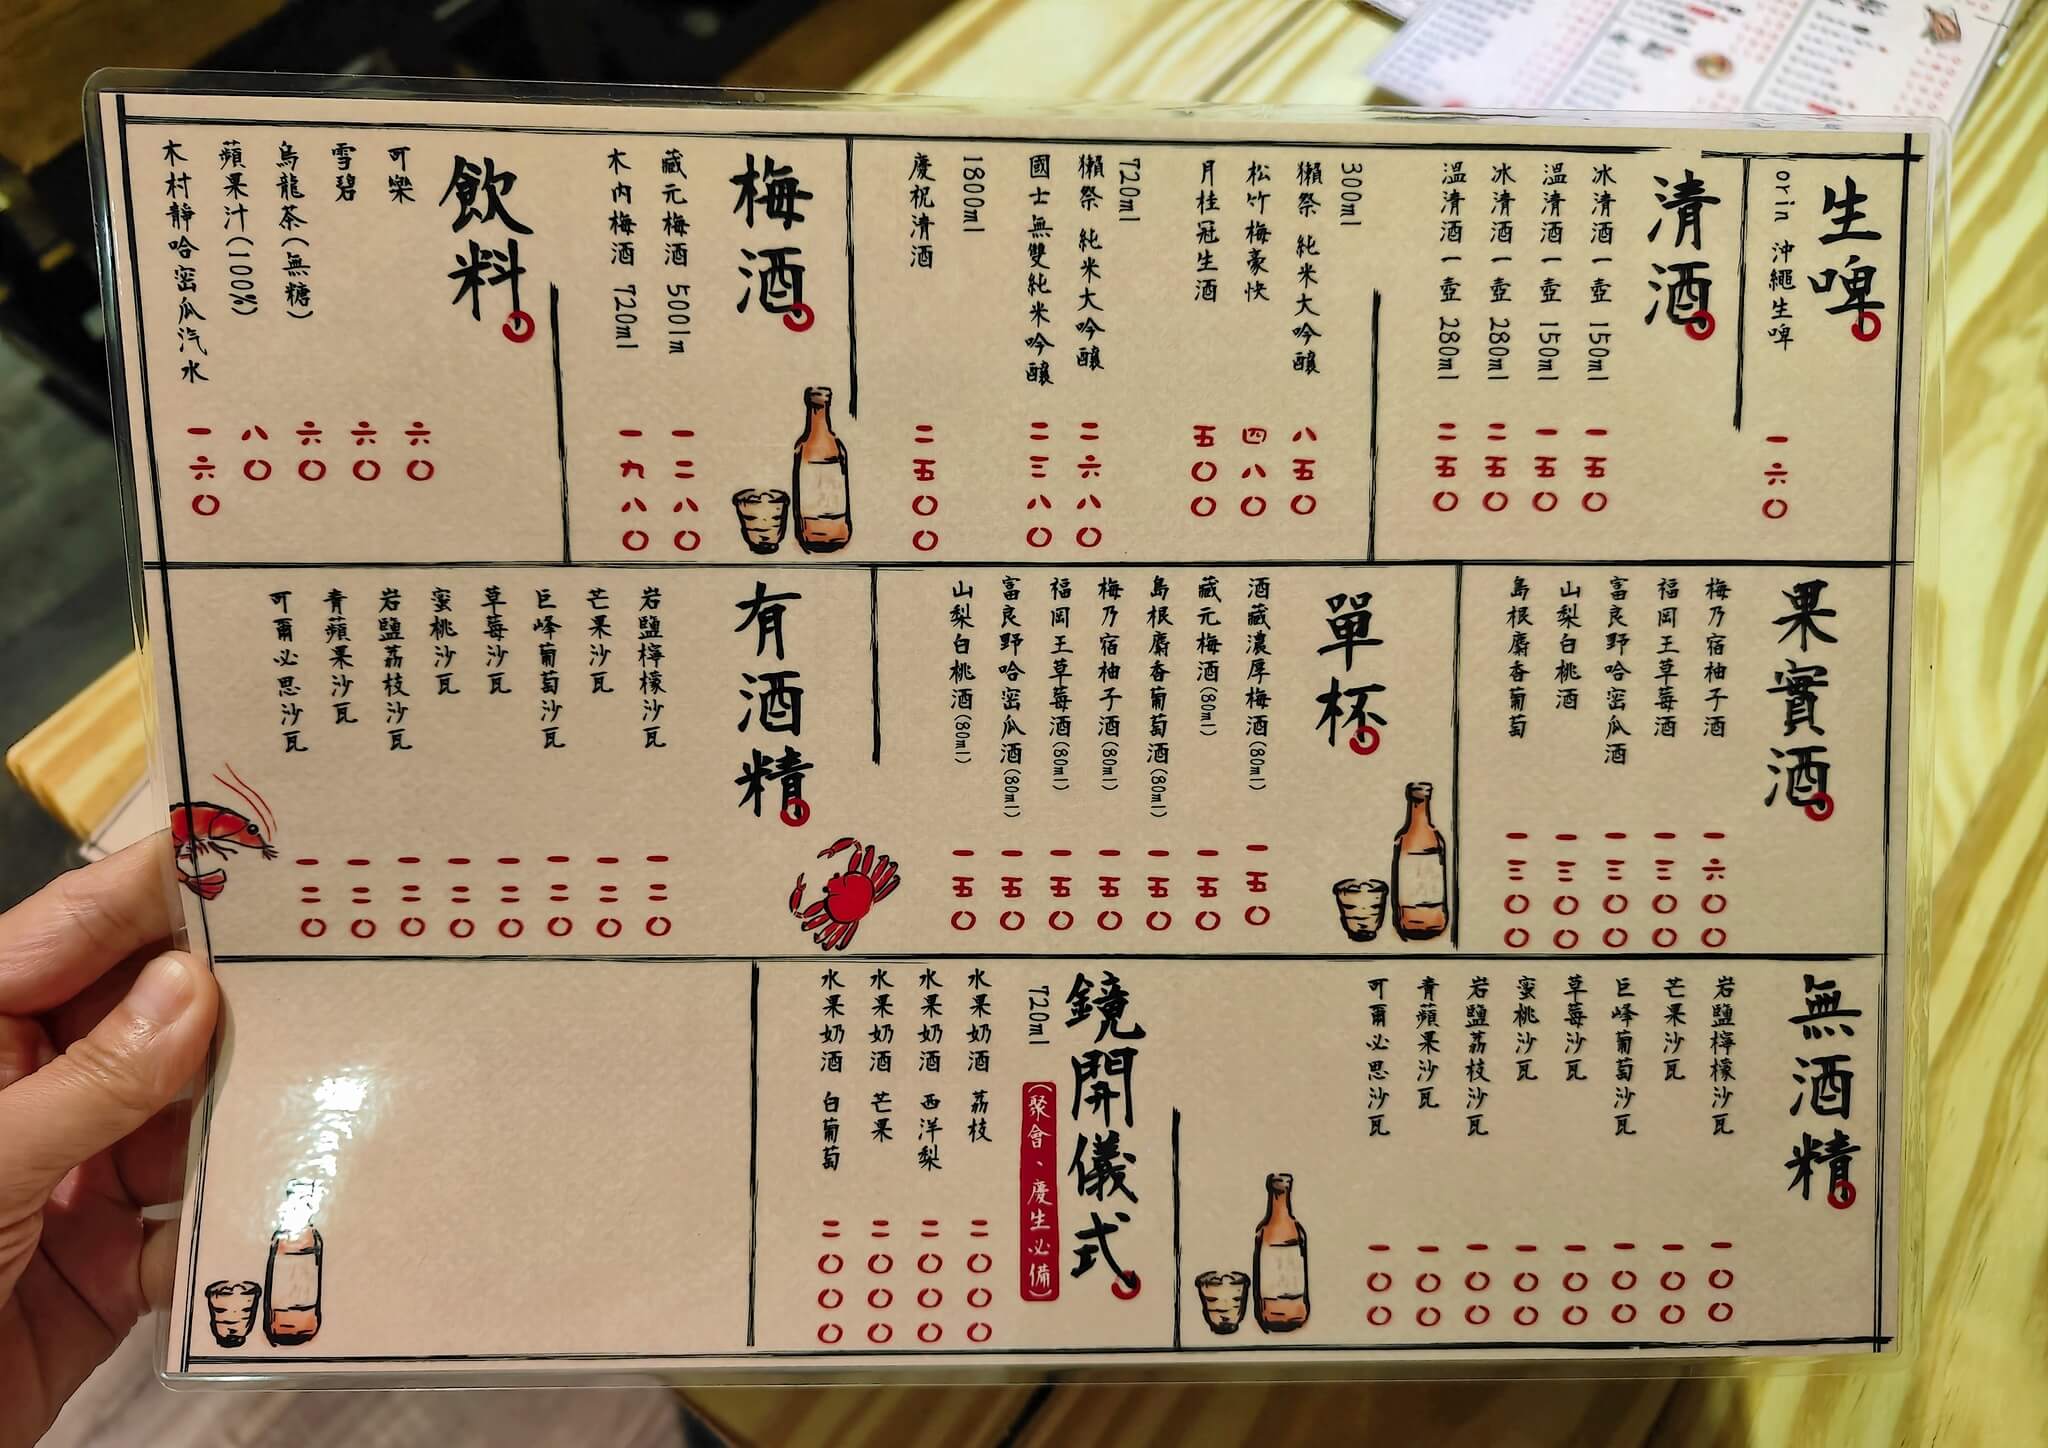 生啤
orin 沖繩生啤 一六〇
清酒
冰清酒一壺 150ml 一五〇
溫清酒一壺 150ml 一五〇
冰清酒一壺 280ml 二五〇
溫清酒一壺 280ml 二五〇
300ml
獺祭 純米大吟釀 八五〇
松竹梅豪快 四八〇
月桂冠生酒 五〇〇
720ml
獺祭 純米大吟釀 二六八〇
國士無雙純米吟釀 二三八〇
1800ml
慶祝清酒 二五〇〇
梅酒
藏元梅酒 500lm 一二八〇
木內梅酒 720ml 一九八〇
飲料
可樂 六〇
雪碧 六〇
烏龍茶(無糖) 六〇
蘋果汁(100%) 八〇
木村靜哈密瓜汽水 一六〇
果實酒
梅乃宿柚子酒 一六〇〇
福岡王草莓酒 一三〇〇
富良野哈密瓜酒 一三〇〇
山梨白桃酒 一三〇〇
島根麝香葡萄 一三〇〇
單杯
酒藏濃厚梅酒(80ml) 一五〇
藏元梅酒(80ml) 一五〇
島根麝香葡萄酒(80ml) 一五〇
梅乃宿柚子酒(80ml) 一五〇
福岡王草莓酒(80ml) 一五〇
富良野哈密瓜酒(80ml) 一五〇
山梨白桃酒(80ml) 一五〇
有酒精
岩鹽檸檬沙瓦 一二〇
芒果沙瓦 一二〇
巨峰葡萄沙瓦 一二〇
草莓沙瓦 一二〇
蜜桃沙瓦 一二〇
岩鹽荔枝沙瓦 一二〇
青蘋果沙瓦 一二〇
可爾必思沙瓦 一二〇
無酒精
岩鹽檸檬沙瓦 一〇〇
芒果沙瓦 一〇〇
巨峰葡萄沙瓦 一〇〇
草莓沙瓦 一〇〇
蜜桃沙瓦 一〇〇
岩鹽荔枝沙瓦 一〇〇
青蘋果沙瓦 一〇〇
可爾必思沙瓦 一〇〇
鏡開儀式
720ml (聚會、慶生必備)
水果奶酒 荔枝 二〇〇〇
水果奶酒 西洋梨 二〇〇〇
水果奶酒 芒果 二〇〇〇
水果奶酒 白葡萄 二〇〇〇